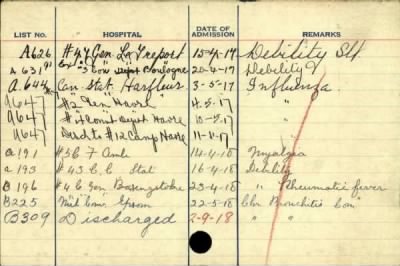 LIST No. HOSPITAL DATE OF ADMISSION REMARKS
A626 #47 Gen Le Treport 15-4-17 Debility Slt
A 631 Con Boulogne 20-4-17 Debility
A 644 Can. Stat. Harfleur 3-5-17 Influenza
A647 #2 Gen Havre 4.5.17 "
A647 #4 Conv Depot Havre 10-5-17 "
A647 Disd to #12 Camp Havre 11-5-17
A191 #56 F Amb 14-4-18 Myalgia
A 193 #43 C.C. Stat 16-4-18 Debility
B 196 #4 C gen Basingstoke 23-4-18 " Rheumatic fever
B225 Mil Con Epsom 22-5-18 Chr Bronchitis Con"
B309 Discharged 2-9-18 " "